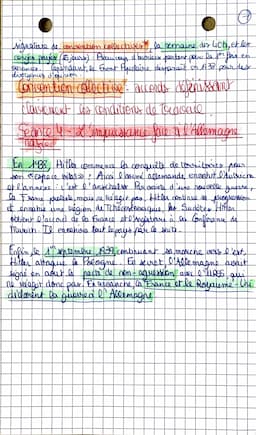 signature de convention collectives*, la semaine des 40h, et les
congés payés (15 jours). Beaucoup d'ouvriers partent pour la 1ère fois en
vacances. Cependant, le Front Populaire disparaît en 1938 pour des
divergences d'opinion.
Convention collective* : accords définissant
clairement les conditions de travail.
Séance 4 - L'impuissance face à l'Allemagne
nazie
En 1938, Hitler commence la conquête de territoires pour
son "espace vital" : Ainsi l'armée allemande envahit l'Autriche
et l'annexe : c'est l'Anschluss. Par crainte d'une nouvelle guerre,
la France proteste mais ne réagit pas. Hitler continue sa progression
et envahit une région de Tchécoslovaquie, les Sudètes. Hitler
obtient l'accord de la France et d'Angleterre à la Conférence de
Munich. Il envahira tout le pays par la suite.
Enfin, le 1er septembre 1939 continuant sa marche vers l'est,
Hitler attaque la Pologne. En secret, l'Allemagne avait
signé en août le pacte de non-agression avec l'URSS qui
ne réagit donc pas. En revanche, la France et le Royaume-Uni
déclarent la guerre à l'Allemagne